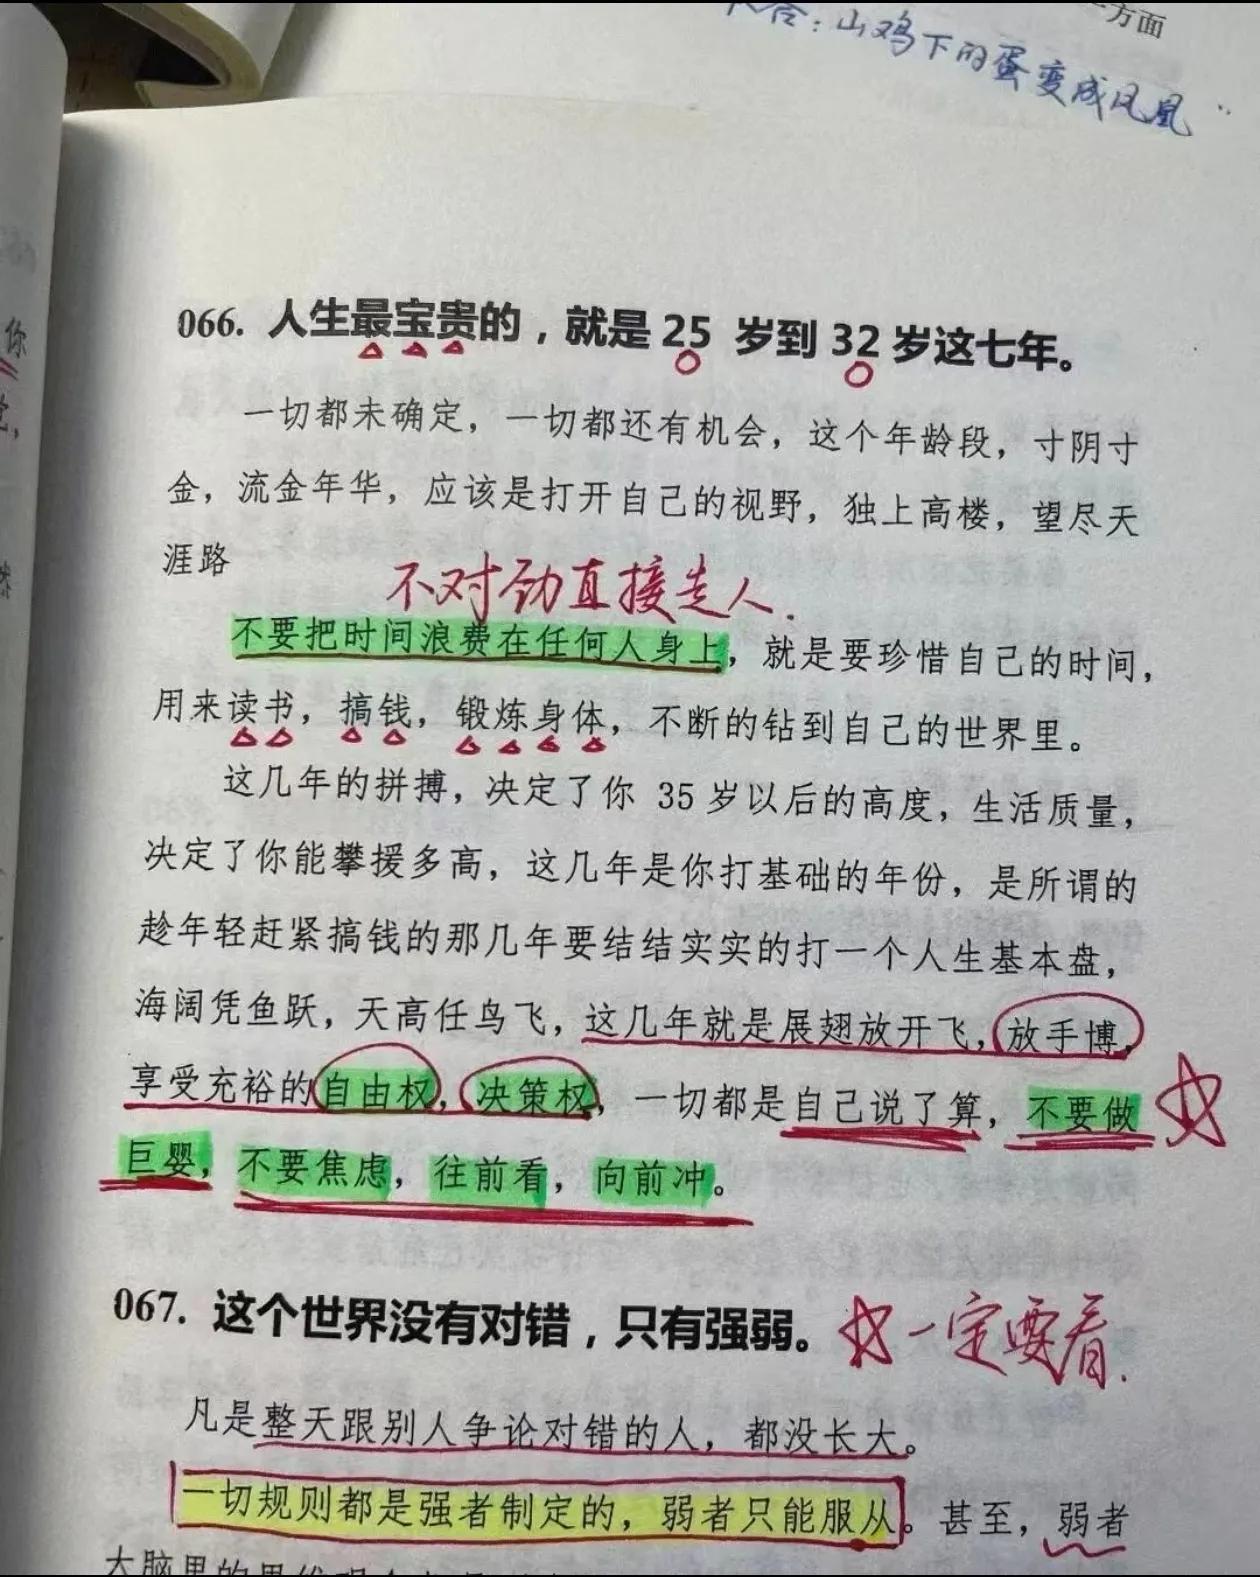 一方面
合：山鸡下的蛋变成凤凰
你
066. 人生最宝贵的，就是 25 岁到 32 岁这七年。
一切都未确定，一切都还有机会，这个年龄段，寸阴寸
金，流金年华，应该是打开自己的视野，独上高楼，望尽天
涯路
不对劲直接走人.
不要把时间浪费在任何人身上，就是要珍惜自己的时间，
用来读书，搞钱，锻炼身体，不断的钻到自己的世界里。
这几年的拼搏，决定了你 35 岁以后的高度，生活质量，
决定了你能攀援多高，这几年是你打基础的年份，是所谓的
趁年轻赶紧搞钱的那几年要结结实实的打一个人生基本盘，
海阔凭鱼跃，天高任鸟飞，这几年就是展翅放开飞，放手博，
享受充裕的自由权，决策权，一切都是自己说了算，不要做
巨婴，不要焦虑，往前看，向前冲。
067. 这个世界没有对错，只有强弱。
一定要看.
凡是整天跟别人争论对错的人，都没长大。
一切规则都是强者制定的，弱者只能服从。甚至，弱者